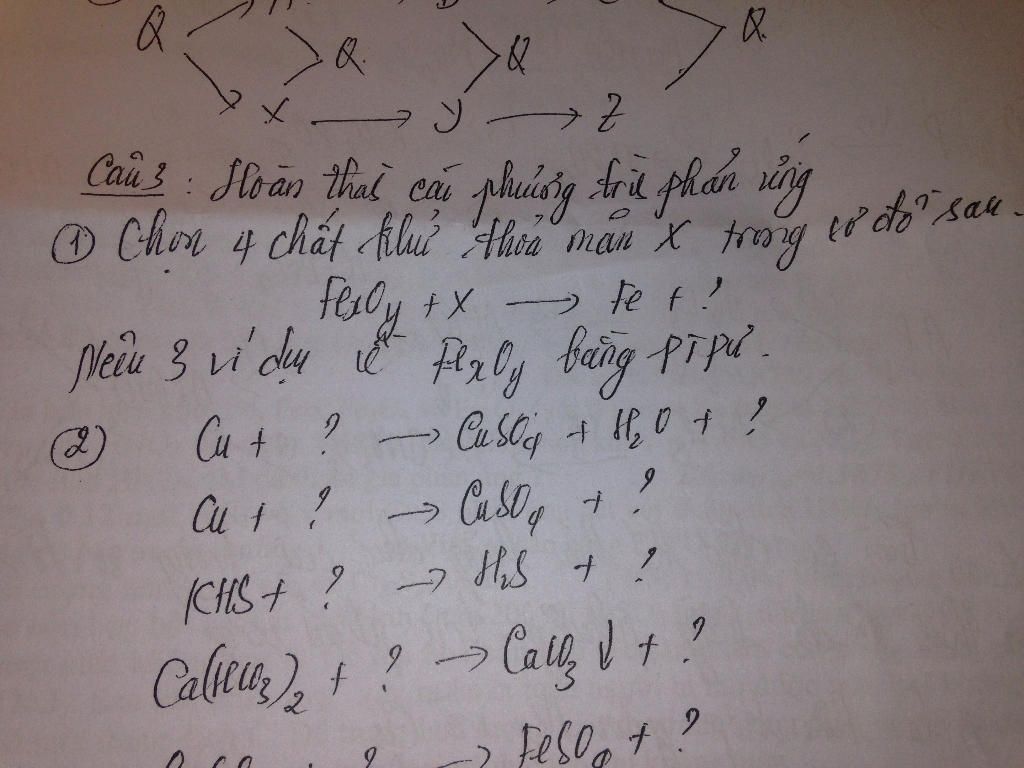 Q Q Q Q
X → Y → Z
Câu 3 : Hoàn thàh các phương trìh phản ứng
① Chọn 4 chất khử thỏa mãn X trong sơ đồ sau.
FexOy + X → Fe + ?
Nêu 3 ví dụ về FexOy bằng PTPƯ.
② Cu + ? → CuSO4 + H2O + ?
Cu + ? → CuSO4 + ?
KHS + ? → H2S + ?
Ca(HCO3)2 + ? → CaCO3 ↓ + ?
+ ? → FeSO4 + ?